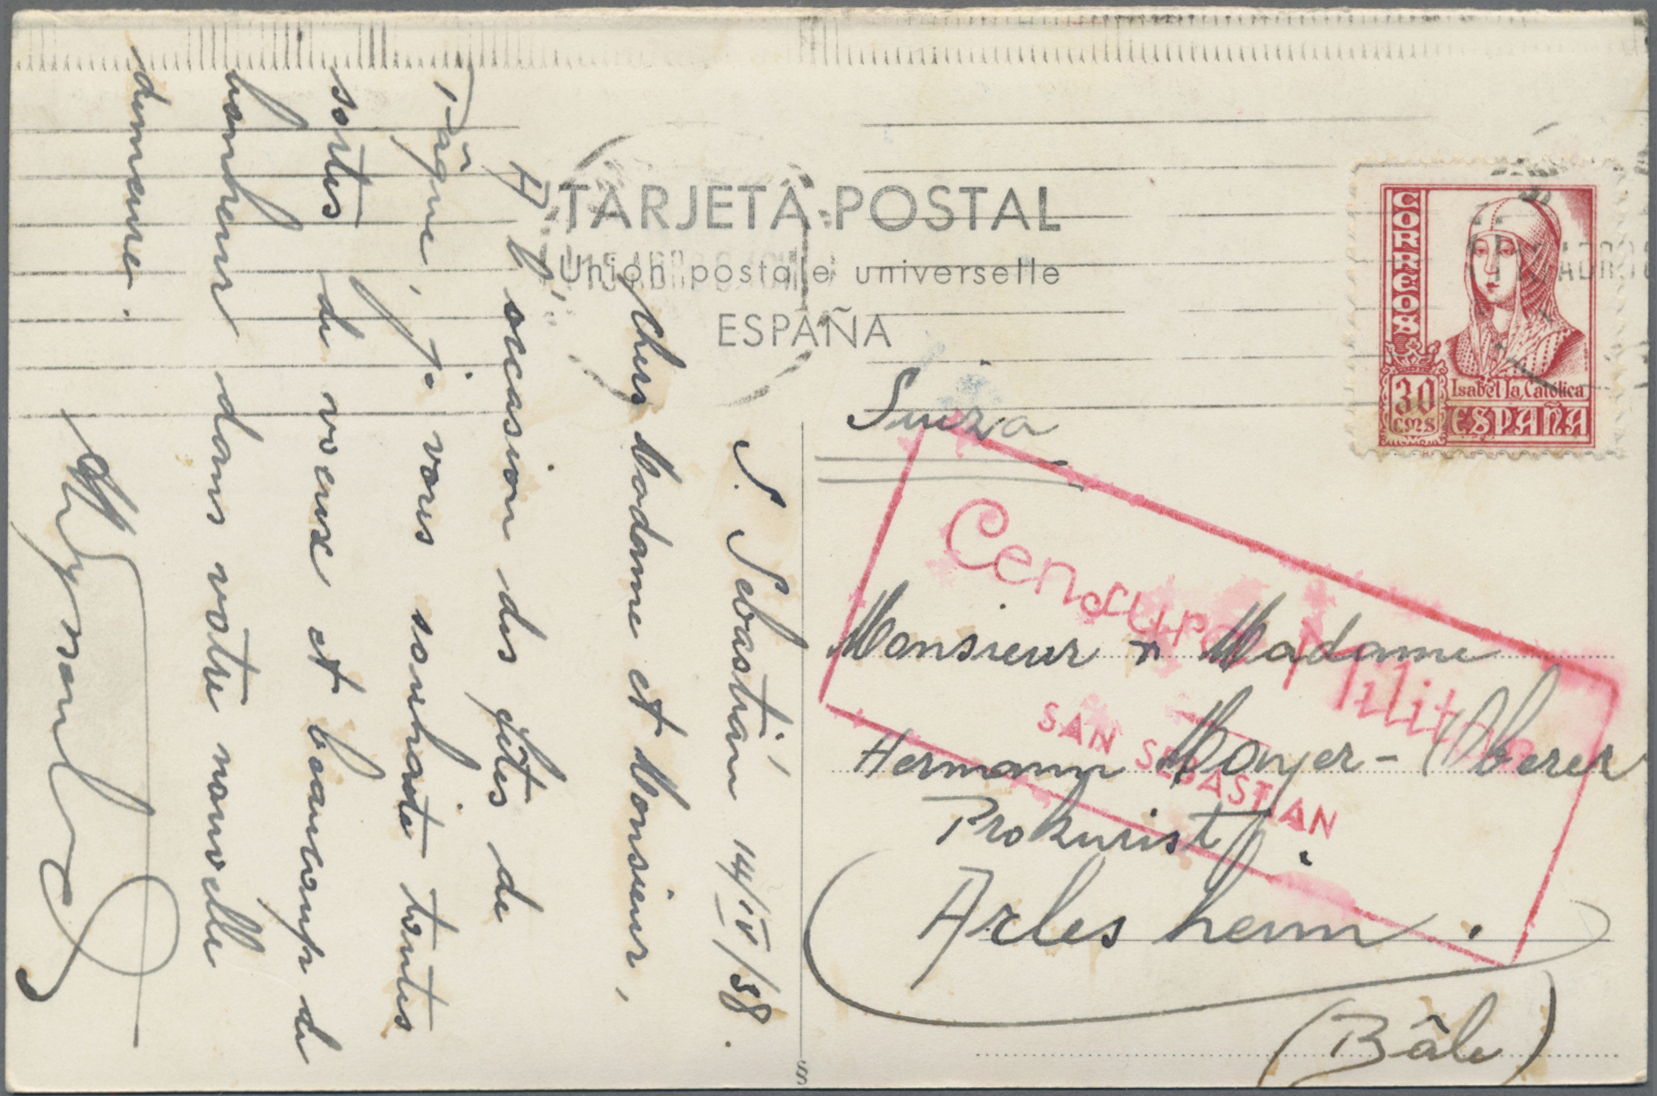 TARJETA POSTAL
Union postale universelle
ESPAÑA
CORREOS
30
CMS
Isabel la Católica
ESPAÑA
Suiza
Censura Militar
SAN SEBASTIAN
Monsieur & Madame
Hermann Monjer-Oberer
Prokurist.
Arlesheim.
(Bâle)
S. Sebastián 14/IV/38.
Chers Madame et Monsieur,
A l'occasion des fêtes de
Pâque, je vous souhaite toutes
sortes de voeux et beaucoup de
bonheur dans votre nouvelle
demeure.